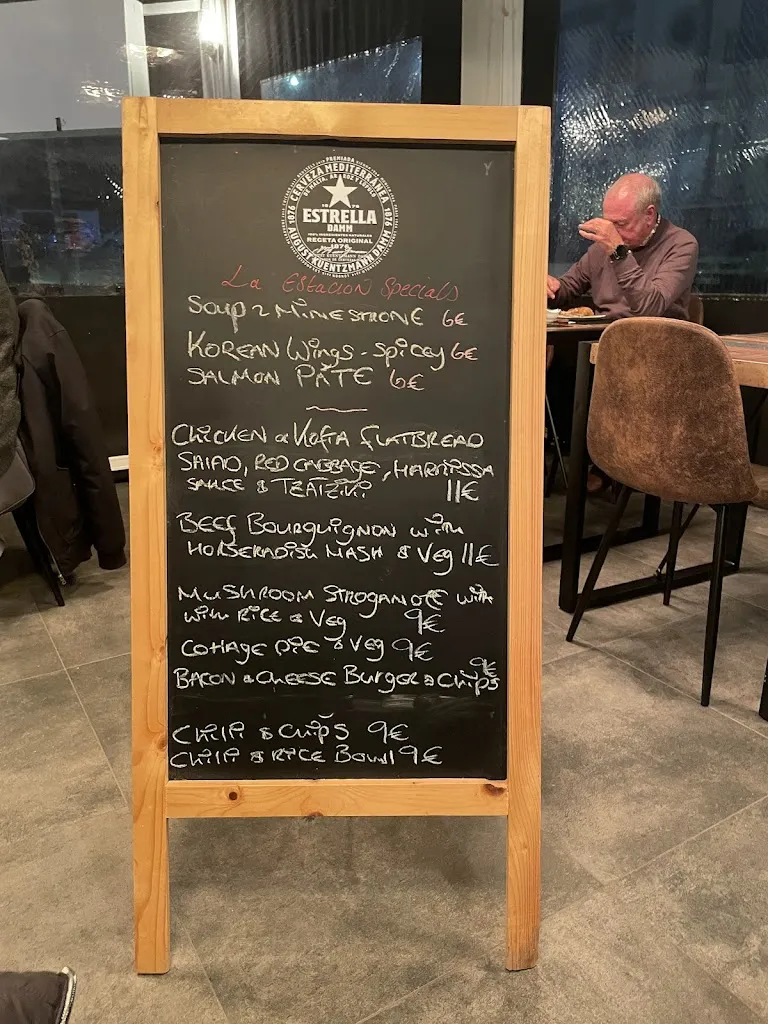 PREMIADA
CERVEZA MEDITERRÁNEA
DE MALTA, ARROZ Y LÚPULO
1876 1876
ESTRELLA
DAMM
100% INGREDIENTES NATURALES
RECETA ORIGINAL
1876
AUGUST KUENTZMANN DAMM
La ESTACION SpeciALS
SOUP 2 MiNESTRONE 6€
KOREAN Wings - Spicey 6€
SALMON PÂTE 6€
CHICKEN & KOFTA FLATBREAD
SALAD, RED CABBAGE, HARRISSA
SAUCE & TZATZIKI 11€
BEEF BOURGUIGNON WITH
HORSERADISH MASH & Veg 11€
MUSHROOM STROGANOFF with
with RICE & Veg 9€
COTTAGE PIE & Veg 9€
9€
BACON & CHEESE Burger & CHIPS
CHilli & CHIPS 9€
CHilli & RICE Bowl 9€